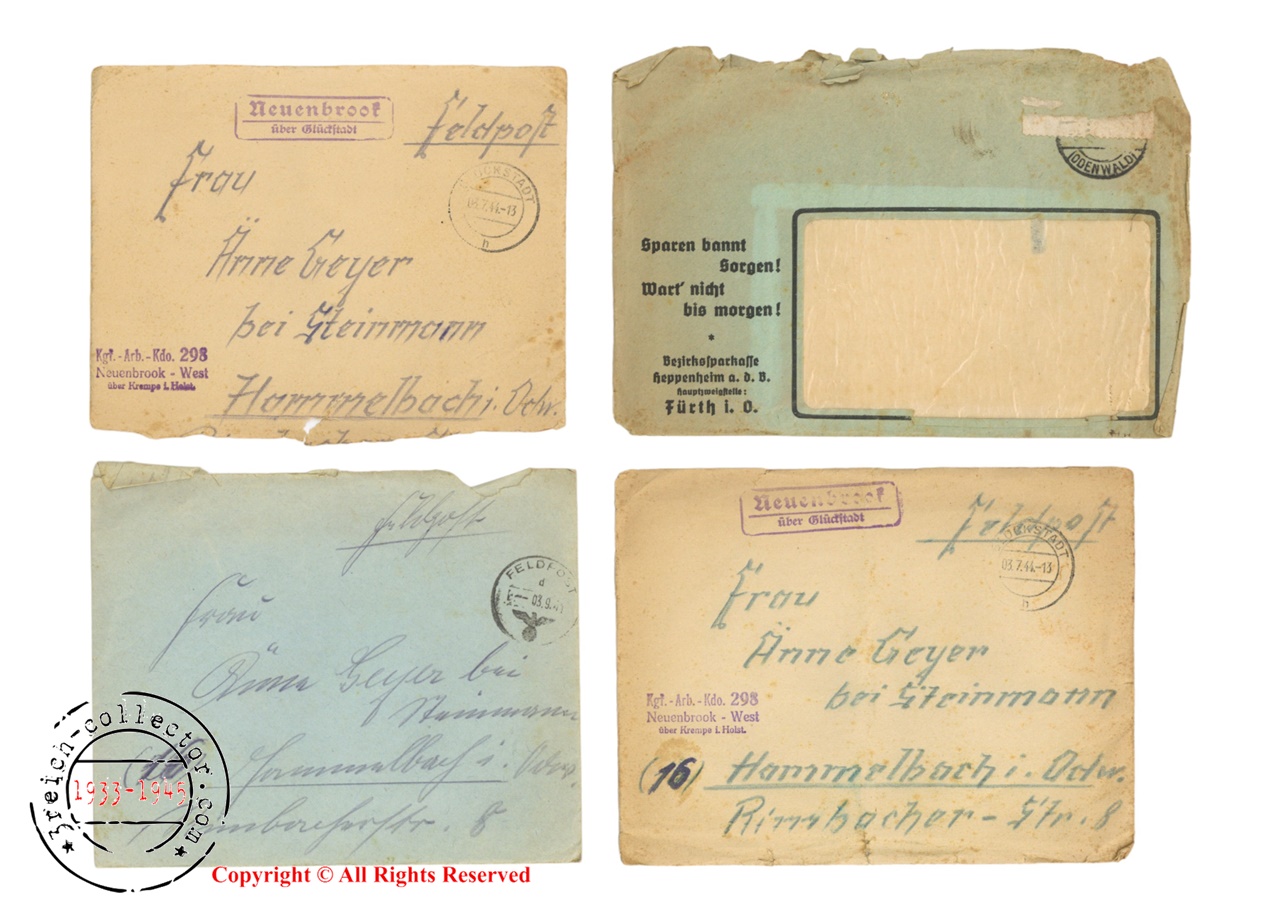 Neuenbrook
über Glückstadt
Feldpost
GLÜCKSTADT
03.7.44.-13
b
Frau
Änne Geyer
bei Steinmann
Kgf.-Arb.-Kdo. 298
Neuenbrook - West
über Krempe i. Holst.
Hammelbach i. Odw.
(ODENWALD)
Sparen bannt
Sorgen!
Wart' nicht
bis morgen!
*
Bezirkssparkasse
Heppenheim a. d. B.
Hauptzweigstelle:
Fürth i. O.
Feldpost
FELDPOST
d
03.9.4
Frau
Änne Geyer bei
Steinmann
Hammelbach i. Odw.
8
Neuenbrook
über Glückstadt
Feldpost
GLÜCKSTADT
03.7.44.-13
b
Frau
Änne Geyer
bei Steinmann
Kgf.-Arb.-Kdo. 298
Neuenbrook - West
über Krempe i. Holst.
(16) Hammelbach i. Odw.
Rimbacher-Str. 8
3reich-collector.com
1933-1945
Copyright © All Rights Reserved